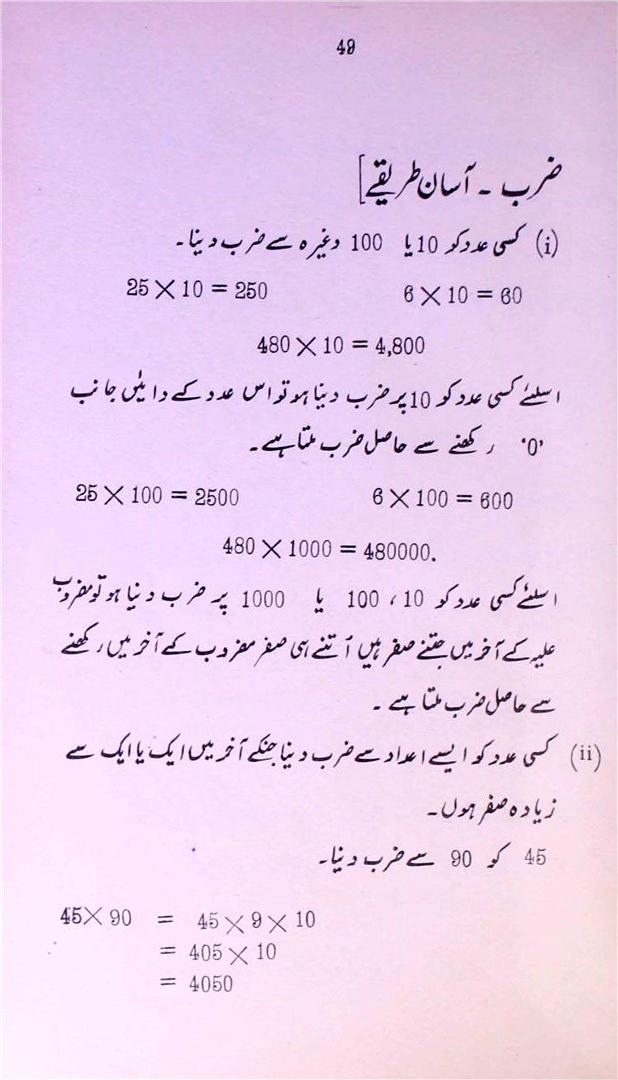 49
ضرب ۔ آسان طریقے]
(i) کسی عدد کو 10 یا 100 وغیرہ سے ضرب دینا۔
25 × 10 = 250 6 × 10 = 60
480 × 10 = 4,800
اسلئے کسی عدد کو 10 پر ضرب دینا ہو تو اس عدد کے دائیں جانب
'0' رکھنے سے حاصل ضرب ملتا ہے۔
25 × 100 = 2500 6 × 100 = 600
480 × 1000 = 480000.
اسلئے کسی عدد کو 10 ، 100 یا 1000 پر ضرب دینا ہو تو مضروب
علیہ کے آخر میں جتنے صفر ہیں اُتنے ہی صفر مضروب کے آخر میں رکھنے
سے حاصل ضرب ملتا ہے ۔
(ii) کسی عدد کو ایسے اعداد سے ضرب دینا جنکے آخر میں ایک یا ایک سے
زیادہ صفر ہوں۔
45 کو 90 سے ضرب دینا۔
45 × 90 = 45 × 9 × 10
= 405 × 10
= 4050